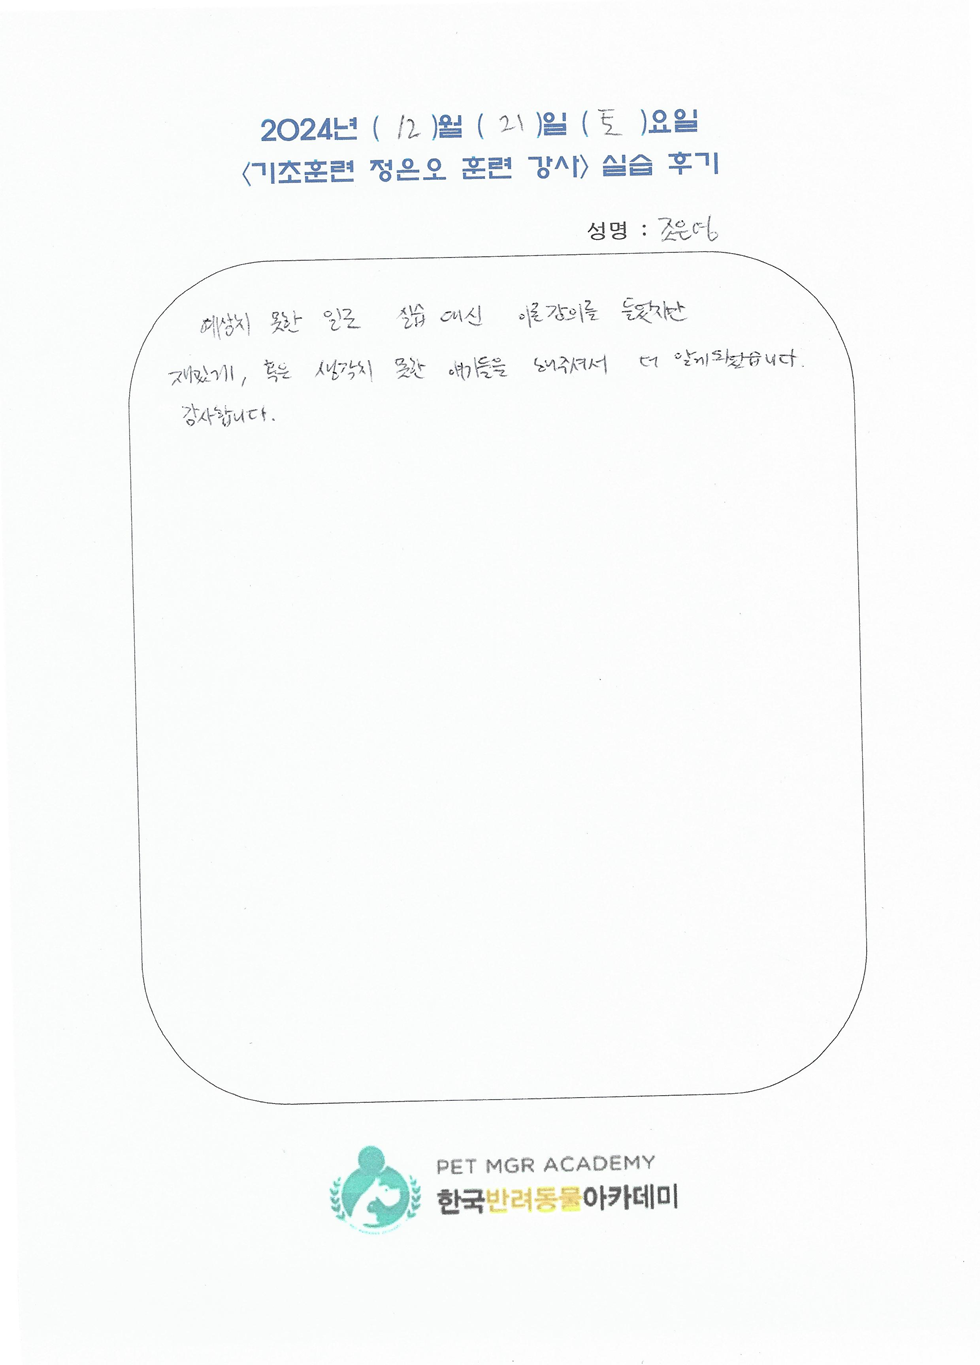 2024년 ( 12 )월 ( 21 )일 ( 토 )요일
<기초훈련 정은오 훈련 강사> 실습 후기
성명 : 조은영
예상치 못한 일로 실습 대신 이론강의를 들었지만
재밌게, 혹은 생각치 못한 얘기들을 해주셔서 더 알게되었습니다.
감사합니다.
PET MGR ACADEMY
한국반려동물아카데미